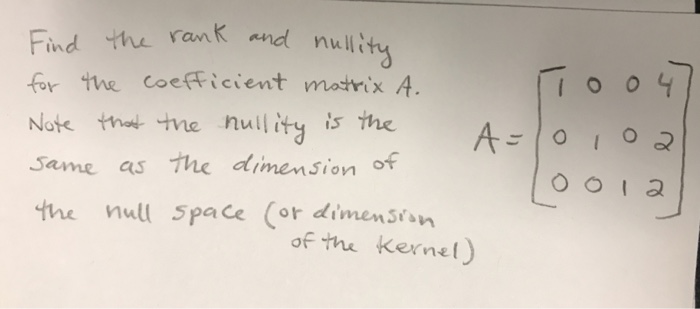 Find the rank and nullity
for the coefficient matrix A.
Note that the nullity is the
same as the dimension of
the null space (or dimension
of the kernel)
A = [1 0 0 4
0 1 0 2
0 0 1 2]